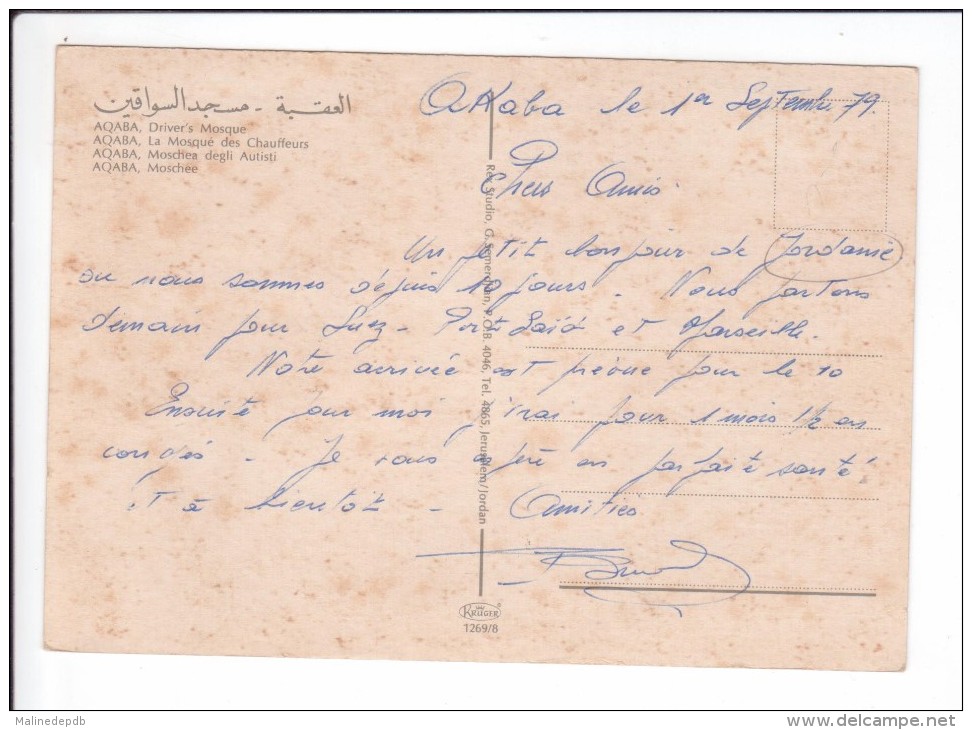 العقبة - مسجد السواقين
AQABA, Driver's Mosque
AQABA, La Mosqué des Chauffeurs
AQABA, Moschea degli Autisti
AQABA, Moschee
Akaba le 1er Septembre 79.
Chers Amis.
Un petit bonjour de Jordanie
ou nous sommes depuis 10 jours. Nous partons
demain pour Suez - Port Saïd et Marseille.
Notre arrivée est prévue pour le 10
Ensuite pour moi j'irai pour 1 mois 1/2 en
congés - Je vous espère en parfaite santé
et à bientôt - Amitiés
Rex Studio, G. P.O.B. 4046, Tel. 4865, Jerusalem/Jordan
KRÜGER
1269/8
Malinedepdb
www.delcampe.net